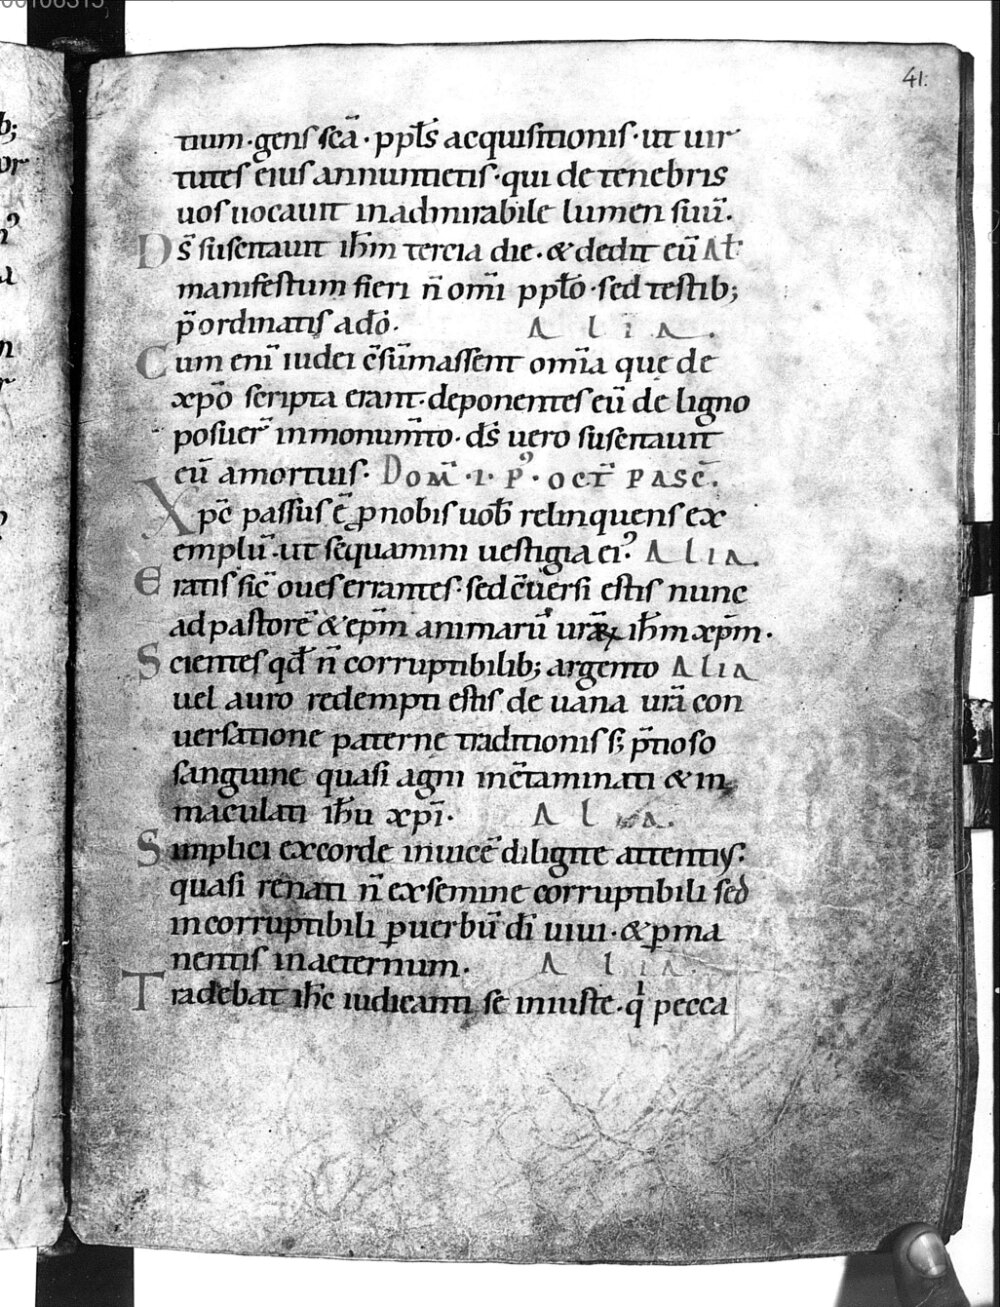 41.
tium·gens scā·ppl̄s acquisitionis·ut uir
tutes eius annuntietis·qui de tenebris
uos uocauit inadmirabile lumen suū.
Ds̄ suscitauit ih̄m tercia die·&dedit eū At̄
manifestum fieri n̄ omī ppl̄o·sed testib;
p̄ordinatis adō·
Alia.
Cum enī iudei c̄sūmassent omīa que de
xpō scripta erant·deponentes eū de ligno
posuer̄ inmonum̄to·ds̄ uero suscitauit
eū amortuis· Dom̄·i·p᾿·oct̄ pasc̄.
Xpc̄ passus ē ꝓnobis uob̄ relinquens ex
emplū·ut sequamini uestigia ei᾿ Alia.
Eratis sic̄ oues errantes·sed c̄uersi estis nunc
ad pastorē &ep̄m animarū urā℞ ih̄m xpm̄·
Scientes qd̄ n̄ corruptibilib; argento Alia
uel auro redempti estis de uana urā con
uersatione paterne traditionis s; p̄tioso
sanguine quasi agni inc̄taminati &in
maculati ih̄u xpī·
Alia.
Simplici excorde inuicē diligite attentiꝰ:
quasi renati n̄ exsemine corruptibili sed
incorruptibili ꝑuerbū dī uiui·&ꝑma
nentis inaeternum·
Alia.
Tradebat ih̄c iudicanti se iniuste·qͥ pecca